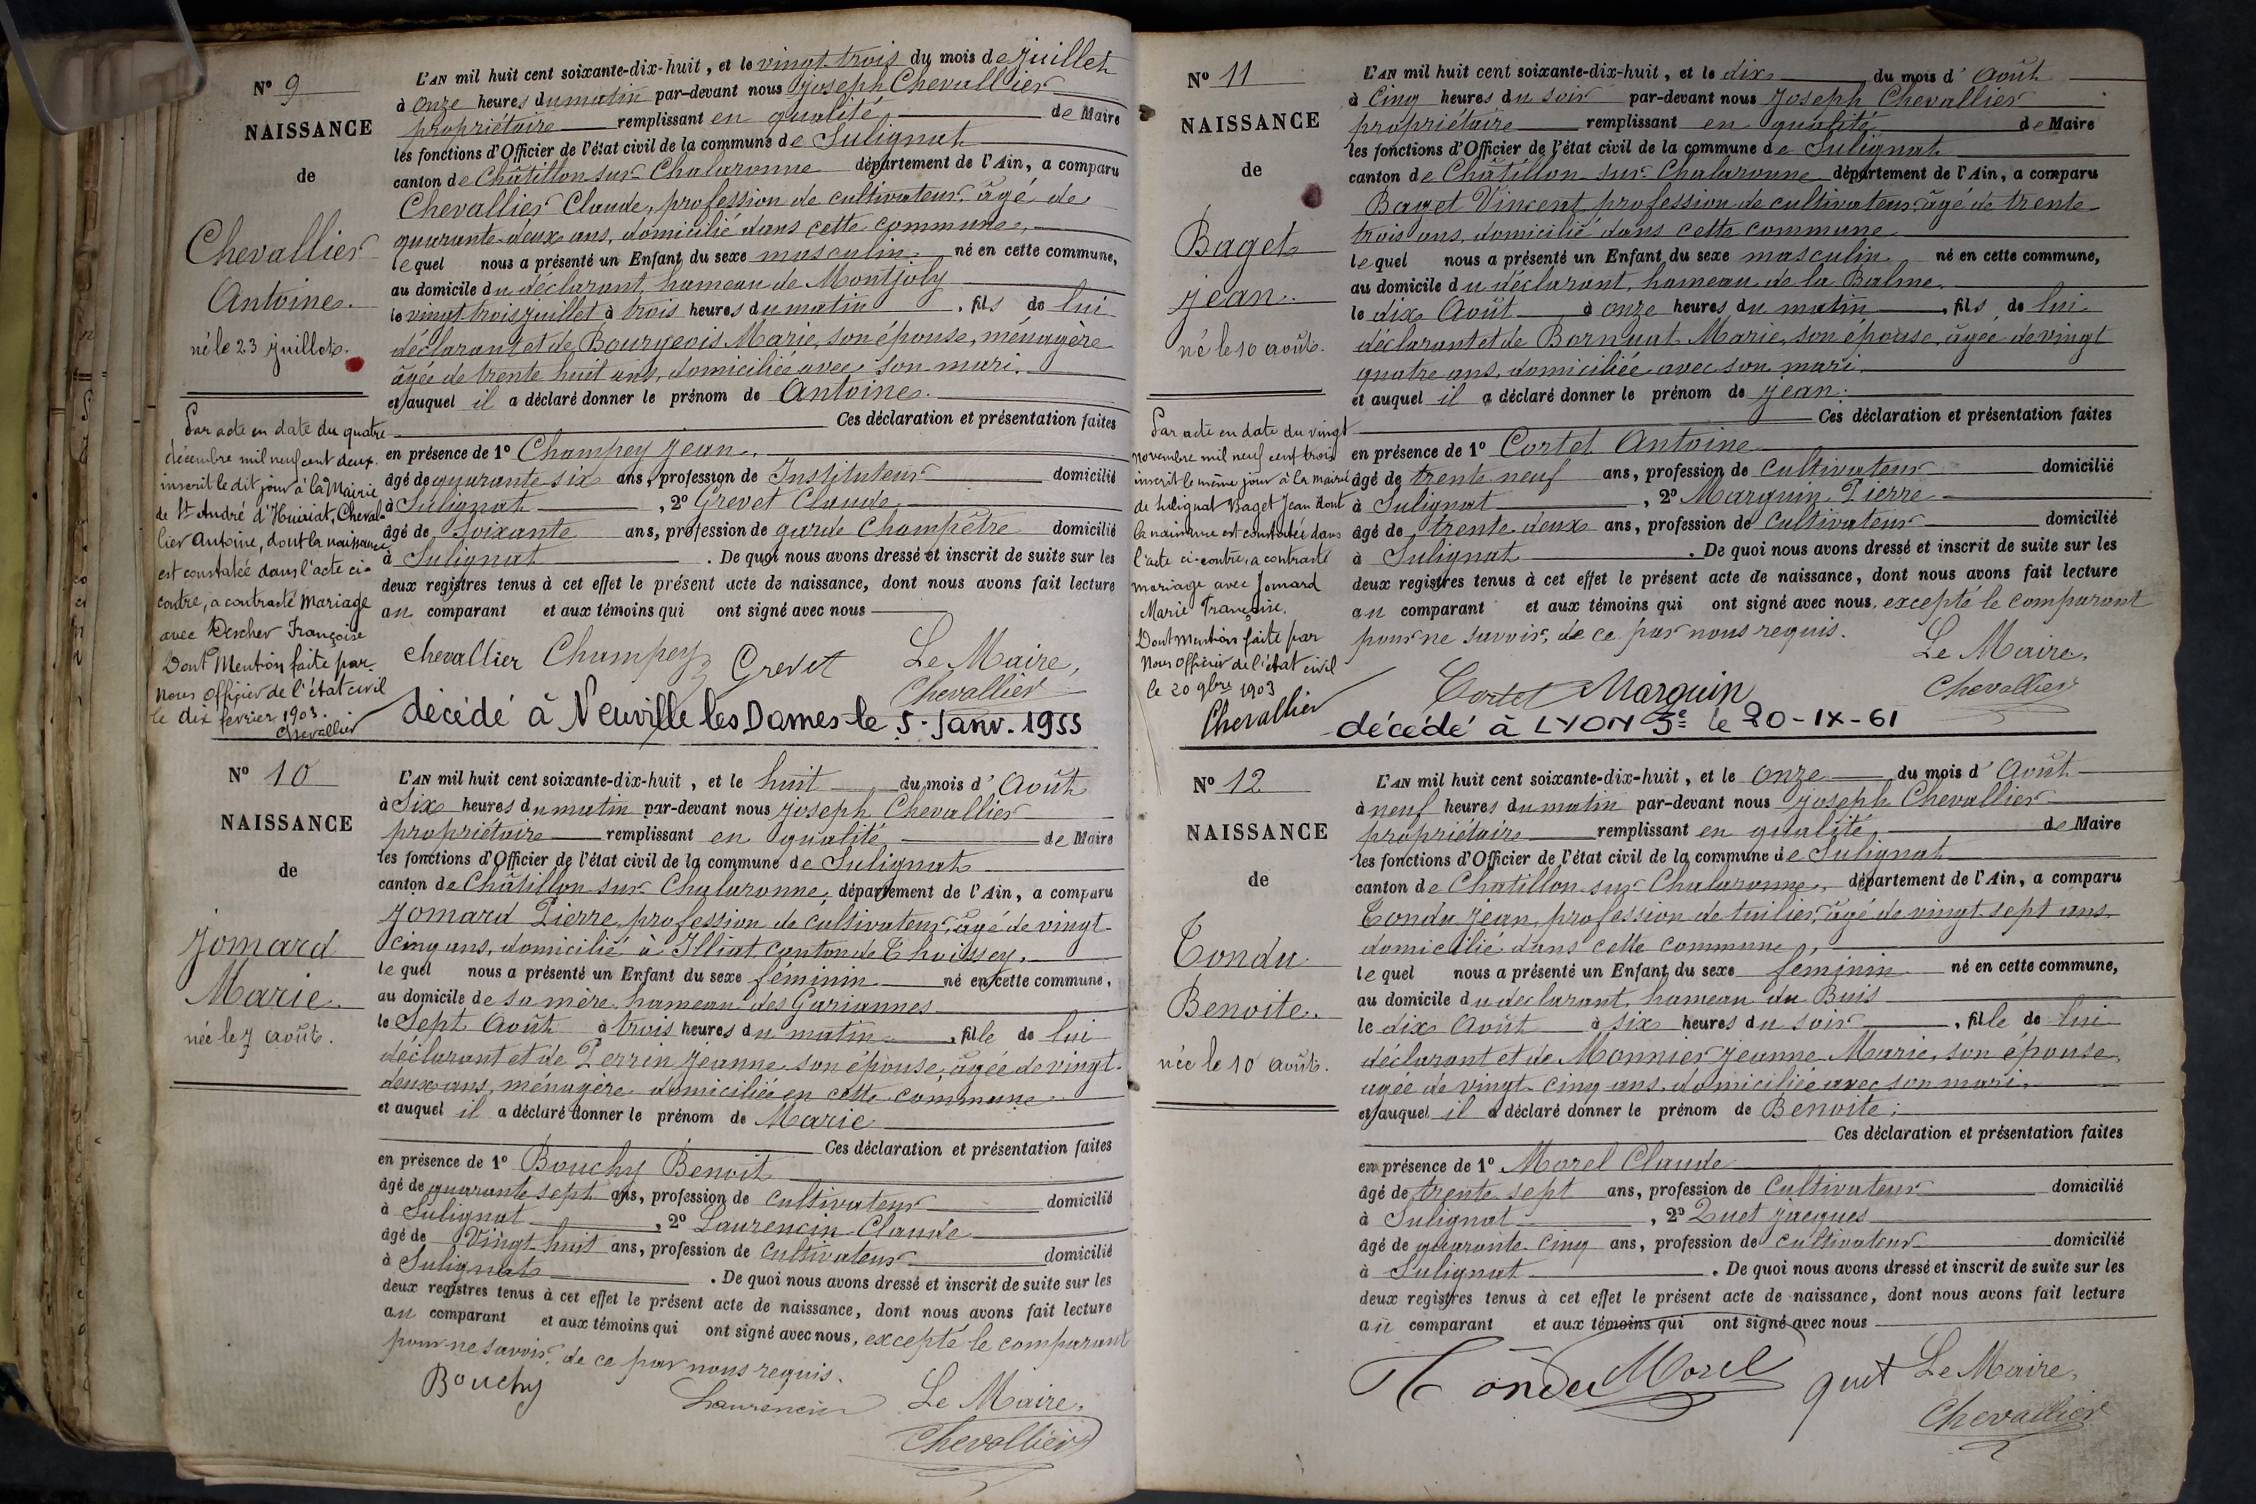 N° 9
NAISSANCE
de
Chevallier
Antoine.
né le 23 juillet.
Par acte en date du quatre
décembre mil neuf cent deux
inscrit le dit jour à la Mairie
de St André d'Huiriat, Cheval-
lier Antoine, dont la naissance
est constatée dans l'acte ci-
contre, a contracté mariage
avec Descher Françoise
Dont Mention faite par
Nous Officier de l'état civil
le dix février 1903.
Chevallier
L'AN mil huit cent soixante-dix-huit, et le vingt trois du mois de juillet
à onze heures du matin par-devant nous Joseph Chevallier
propriétaire remplissant en qualité de Maire
les fonctions d'Officier de l'état civil de la commune de Sulignat
canton de Châtillon sur Chalaronne département de l'Ain, a comparu
Chevallier Claude, profession de cultivateur, âgé de
quarante-deux ans, domicilié dans cette commune,
lequel nous a présenté un Enfant du sexe masculin, né en cette commune,
au domicile du déclarant, hameau de Montjoly
le vingt trois juillet à trois heures du matin, fils de lui
déclarant et de Bourgeois Marie, son épouse, ménagère
âgée de trente huit ans, domiciliée avec son mari.
et auquel il a déclaré donner le prénom de Antoine.
Ces déclaration et présentation faites
en présence de 1° Champey Jean,
âgé de quarante six ans, profession de Instituteur domicilié
à Sulignat, 2° Grevet Claude,
âgé de Soixante ans, profession de garde Champêtre domicilié
à Sulignat. De quoi nous avons dressé et inscrit de suite sur les
deux registres tenus à cet effet le présent acte de naissance, dont nous avons fait lecture
au comparant et aux témoins qui ont signé avec nous
Chevallier Champey Grevet Le Maire,
Chevallier
décédé à Neuville les Dames le 5. Janv. 1955
N° 10
NAISSANCE
de
Jomard
Marie.
née le 7 août.
L'AN mil huit cent soixante-dix-huit, et le huit du mois d' Août
à Six heures du matin par-devant nous Joseph Chevallier
propriétaire remplissant en qualité de Maire
les fonctions d'Officier de l'état civil de la commune de Sulignat
canton de Châtillon sur Chalaronne, département de l'Ain, a comparu
Jomard Pierre, profession de cultivateur, âgé de vingt-
cinq ans, domicilié à Illiat canton de Thoissey,
lequel nous a présenté un Enfant du sexe féminin né en cette commune,
au domicile de sa mère, hameau des Gariannes
le Sept Août à trois heures du matin, fille de lui
déclarant et de Perrin Jeanne son épouse, âgée de vingt-
deux ans, ménagère domiciliée en cette commune
et auquel il a déclaré donner le prénom de Marie
Ces déclaration et présentation faites
en présence de 1° Bouchy Benoit
âgé de quarante sept ans, profession de Cultivateur domicilié
à Sulignat, 2° Laurencin Claude
âgé de Vingt huit ans, profession de Cultivateur domicilié
à Sulignat. De quoi nous avons dressé et inscrit de suite sur les
deux registres tenus à cet effet le présent acte de naissance, dont nous avons fait lecture
au comparant et aux témoins qui ont signé avec nous, excepté le comparant
pour ne savoir, de ce par nous requis.
Bouchy Laurencin Le Maire,
Chevallier
N° 11
NAISSANCE
de
Baget
Jean.
né le 10 août.
Par acte en date du vingt
novembre mil neuf cent trois
inscrit le même jour à la mairie
de Sulignat Baget Jean dont
la naissance est constatée dans
l'acte ci-contre, a contracté
mariage avec Jomard
Marie Françoise.
Dont Mention faite par
Nous Officier de l'état civil
le 20 9bre 1903
Chevallier
L'AN mil huit cent soixante-dix-huit, et le dix du mois d' Août
à Cinq heures du soir par-devant nous Joseph Chevallier
propriétaire remplissant en qualité de Maire
les fonctions d'Officier de l'état civil de la commune de Sulignat
canton de Châtillon sur Chalaronne département de l'Ain, a comparu
Baget Vincent profession de cultivateur, âgé de trente
trois ans, domicilié dans cette commune
lequel nous a présenté un Enfant du sexe masculin, né en cette commune,
au domicile du déclarant, hameau de la Balme,
le dix Août à onze heures du matin, fils de lui
déclarant et de Bornuat Marie, son épouse, âgée de vingt
quatre ans, domiciliée avec son mari,
et auquel il a déclaré donner le prénom de Jean.
Ces déclaration et présentation faites
en présence de 1° Cortet Antoine
âgé de trente neuf ans, profession de Cultivateur domicilié
à Sulignat, 2° Marguin Pierre
âgé de trente-deux ans, profession de Cultivateur domicilié
à Sulignat. De quoi nous avons dressé et inscrit de suite sur les
deux registres tenus à cet effet le présent acte de naissance, dont nous avons fait lecture
au comparant et aux témoins qui ont signé avec nous, excepté le comparant
pour ne savoir, de ce par nous requis. Le Maire,
Cortet Marguin Chevallier
décédé à LYON 3e le 20-IX-61
N° 12
NAISSANCE
de
Tondu
Benoite.
née le 10 août.
L'AN mil huit cent soixante-dix-huit, et le onze du mois d' Août
à neuf heures du matin par-devant nous Joseph Chevallier
propriétaire remplissant en qualité de Maire
les fonctions d'Officier de l'état civil de la commune de Sulignat
canton de Châtillon sur Chalaronne, département de l'Ain, a comparu
Tondu Jean, profession de tuilier, âgé de vingt sept ans,
domicilié dans cette commune,
lequel nous a présenté un Enfant du sexe féminin né en cette commune,
au domicile du déclarant, hameau du Buis
le dix Août à six heures du soir, fille de lui
déclarant et de Monnier Jeanne Marie, son épouse,
âgée de vingt-cinq ans, domiciliée avec son mari,
et auquel il a déclaré donner le prénom de Benoite;
Ces déclaration et présentation faites
en présence de 1° Morel Claude
âgé de trente sept ans, profession de Cultivateur domicilié
à Sulignat, 2° Quet Jacques
âgé de quarante-cinq ans, profession de cultivateur domicilié
à Sulignat. De quoi nous avons dressé et inscrit de suite sur les
deux registres tenus à cet effet le présent acte de naissance, dont nous avons fait lecture
au comparant et aux témoins qui ont signé avec nous
Tondu Morel quet Le Maire,
Chevallier